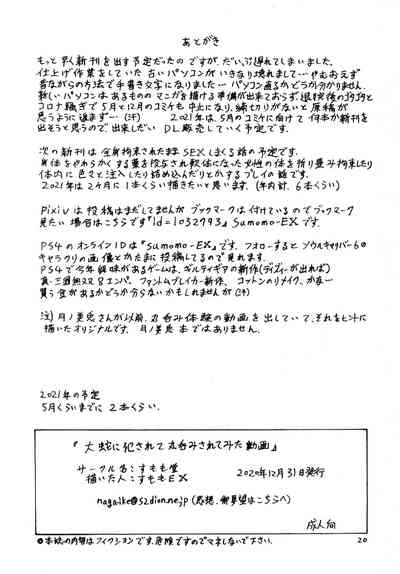 あとがき
もっと早く新刊を出す予定だったのですが、だいぶ遅れてしまいました。
仕上げ作業をしていた古いパソコンがいきなり壊れまして…やむおえず
昔ながらの方法で手書き文字になりました…パソコン直るかどうか分かりません。
新しいパソコンは、あるもののマンガを描ける準備が出来ておらず、退院後のゴタゴタと
コロナ騒ぎで5月と12月のコミケも中止になり、締切りがないと原稿が
思うように進まず…(汗) 2021年は、5月のコミケに向けて何本か新刊を
出そうと思うので出来しだいDL販売していく予定です。
次の新刊は全身拘束されたままSEXしまくる話の予定です。
身体をやわらかくする薬を投与され軟体になった女性の体を折り畳み拘束したり
体内に色々と注入したり詰め込んだりとかするプレイの話です。
2021年は2ヶ月に1本くらい描きたいと思います。(年内計、6本くらい)
Pixivは投稿はまだしてませんがブックマークは付けているのでブックマーク
見たい場合はこちらです『id=1032793』sumomo-EXです。
PS4のオンラインIDは『sumomo-EX』です。フォローするとソウルキャリバー6の
キャラクリの画像とかたまに投稿してるので見れます。
PS4で今年興味があるゲームは、ギルティギアの新作(ディズィーが出れば)
真・三國無双8エンパ、ファントムブレイカー新作、コットンのリメイク、かな…
買う金があるかどうか分らないかもしれませんが(汗)
注)月ノ美兎さんが以前、丸呑み体験の動画を出していて、それをヒントに
描いたオリジナルです。月ノ美兎本ではありません。
2021年の予定
5月くらいまでに2本くらい。
『大蛇に犯されて丸呑みされてみた動画』
サークル名:すもも堂
描いた人:すももEX
2020年12月31日発行
nagaike@s2.dion.ne.jp(感想、御要望はこちらへ)
成人向
●本紙の内容はフィクションです。危険ですのでマネしないで下さい。
20